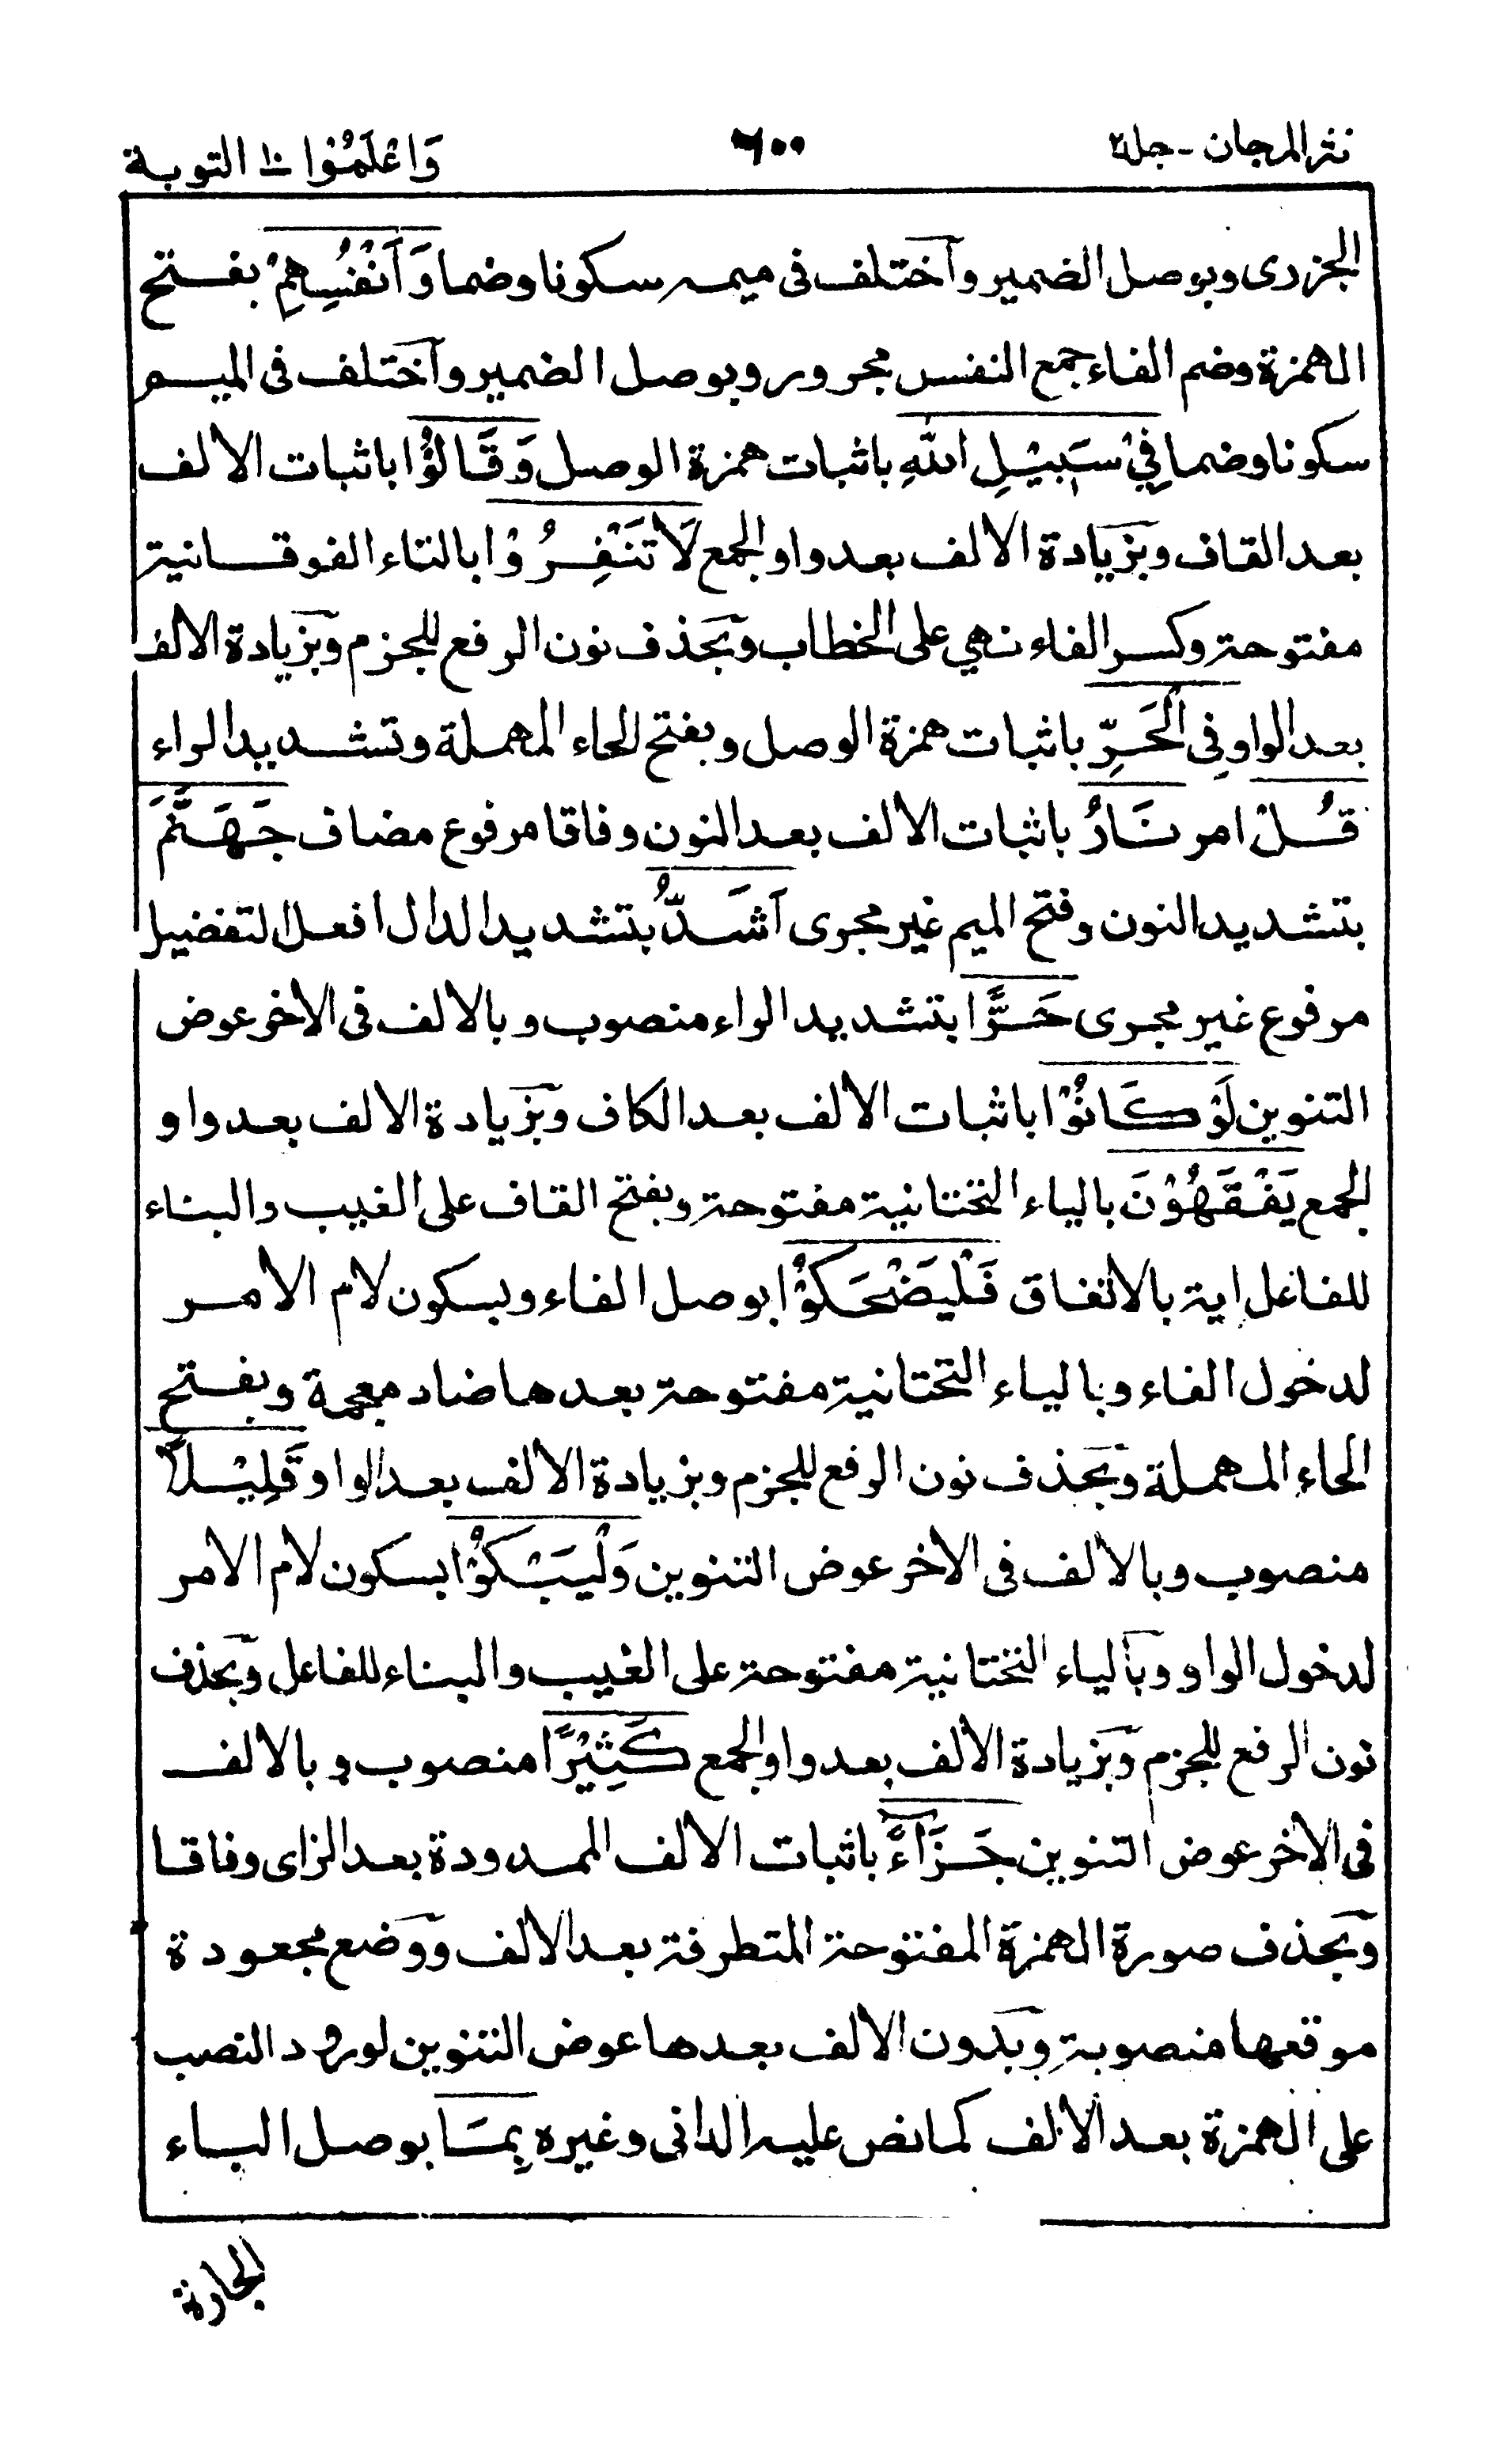 نثر المرجان - جلد٢ ٦٠٠ وَاعْلَمُوْا ١٠ التوبة
الجزرى وبوصل الضمير واختلف فى ميمه سكونا وضما وَأَنْفُسِهِمْ بفتح
الهمزة وضم الفاء جمع النفس مجرور وبوصل الضمير واختلف فى الميم
سكونا وضما فِيْ سَبِيْلِ اللّٰهِ باثبات همزة الوصل وَقَالُوْا باثبات الالف
بعد القاف وبزيادة الالف بعد واو الجمع لَا تَنْفِرُوْا بالتاء الفوقانية
مفتوحة وكسر الفاء نهي على الخطاب وبحذف نون الرفع للجزم وبزيادة الالف
بعد الواو فِى الْحَرِّ باثبات همزة الوصل وبفتح الحاء المهملة وتشديد الراء
قُلْ امر نَارُ باثبات الالف بعد النون وفاقا مرفوع مضاف جَهَنَّمَ
بتشديد النون وفتح الميم غير مجرى أَشَدُّ بتشديد الدال افعل التفضيل
مرفوع غير مجرى حَرًّا بتشديد الراء منصوب وبالالف فى الاخر عوض
التنوين لَوْ كَانُوْا باثبات الالف بعد الكاف وبزيادة الالف بعد واو
الجمع يَفْقَهُوْنَ بالياء التحتانية مفتوحة وبفتح القاف على الغيب والبناء
للفاعل اية بالاتفاق فَلْيَضْحَكُوْا بوصل الفاء وبسكون لام الامر
لدخول الفاء وبالياء التحتانية مفتوحة بعدها ضاد معجمة وبفتح
الحاء المهملة وبحذف نون الرفع للجزم وبزيادة الالف بعد الواو قَلِيْلًا
منصوب وبالالف فى الاخر عوض التنوين وَلْيَبْكُوْا بسكون لام الامر
لدخول الواو وبالياء التحتانية مفتوحة على الغيب والبناء للفاعل وبحذف
نون الرفع للجزم وبزيادة الالف بعد واو الجمع كَثِيْرًا منصوب وبالالف
فى الاخر عوض التنوين جَزَآءً باثبات الالف الممدودة بعد الزاى وفاقا
وبحذف صورة الهمزة المفتوحة المتطرفة بعد الالف ووضع مجعودة
موقعها منصوبة وبدون الالف بعدها عوض التنوين لورود النصب
على الهمزة بعد الالف كما نص عليه الدانى وغيره بِمَا بوصل الباء
الجارة